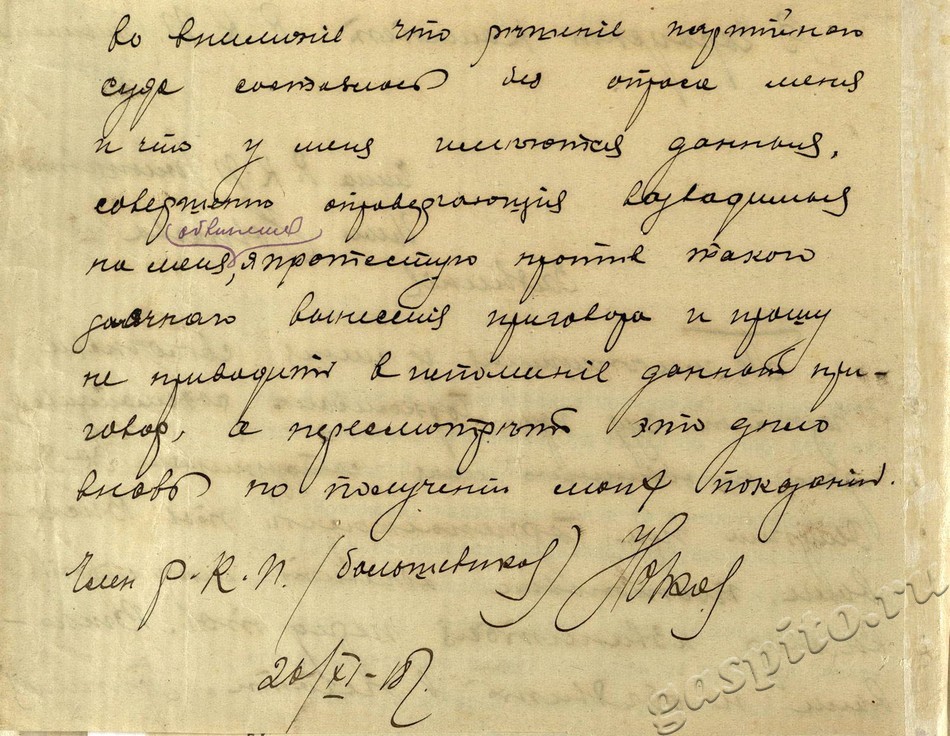 во вниманіе что рѣшеніе партійнаго
суда составлось без опроса меня
и что у меня имѣются данныя,
совершенно опровергающія взводимыя
обвинения
на меня, я протестую против такого
заочнаго вынесенія приговора и прошу
не приводить в исполненіе данный при-
говор, а пересмотрѣть это дѣло
вновь по полученіи моих показаній.
Член Р.К.П. (большевиков)
20/XI-18 г.
gaspito.ru